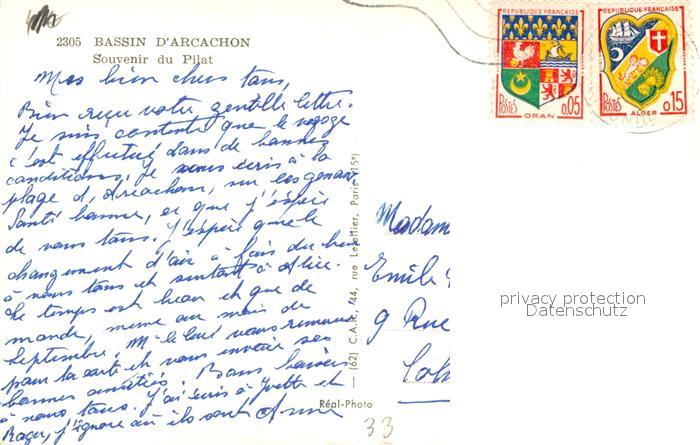 2305 BASSIN D'ARCACHON
Souvenir du Pilat
Mes bien chers tous,
Bien reçu votre gentille lettre.
Je suis contente que le voyage
c'est effectué dans de bonnes
conditions. Je vous écris à la
plage d'Arcachon, sur les genoux,
Santé bonne, ce que j'espère
de vous tous. J'espère que le
changement d'air a fais du bien
à vous tous et surtout à Alice.
Le temps est beau et que de
monde, même au mois de
Septembre. Mme vous remercie
pour la carte et vous envoie ses
bonnes amitiés. Bons baisers
à vous tous. J'ai écris à Yvette et
Roger, j'ignore où ils sont
REPUBLIQUE FRANÇAISE
POSTES 0,05
ORAN
REPUBLIQUE FRANÇAISE
POSTES 0,15
ALGER
(62) C.A.R., 44, rue Letellier, Paris (15e)
Réal-Photo
Madam
Emile
9 Rue
Col
33
privacy protection
Datenschutz